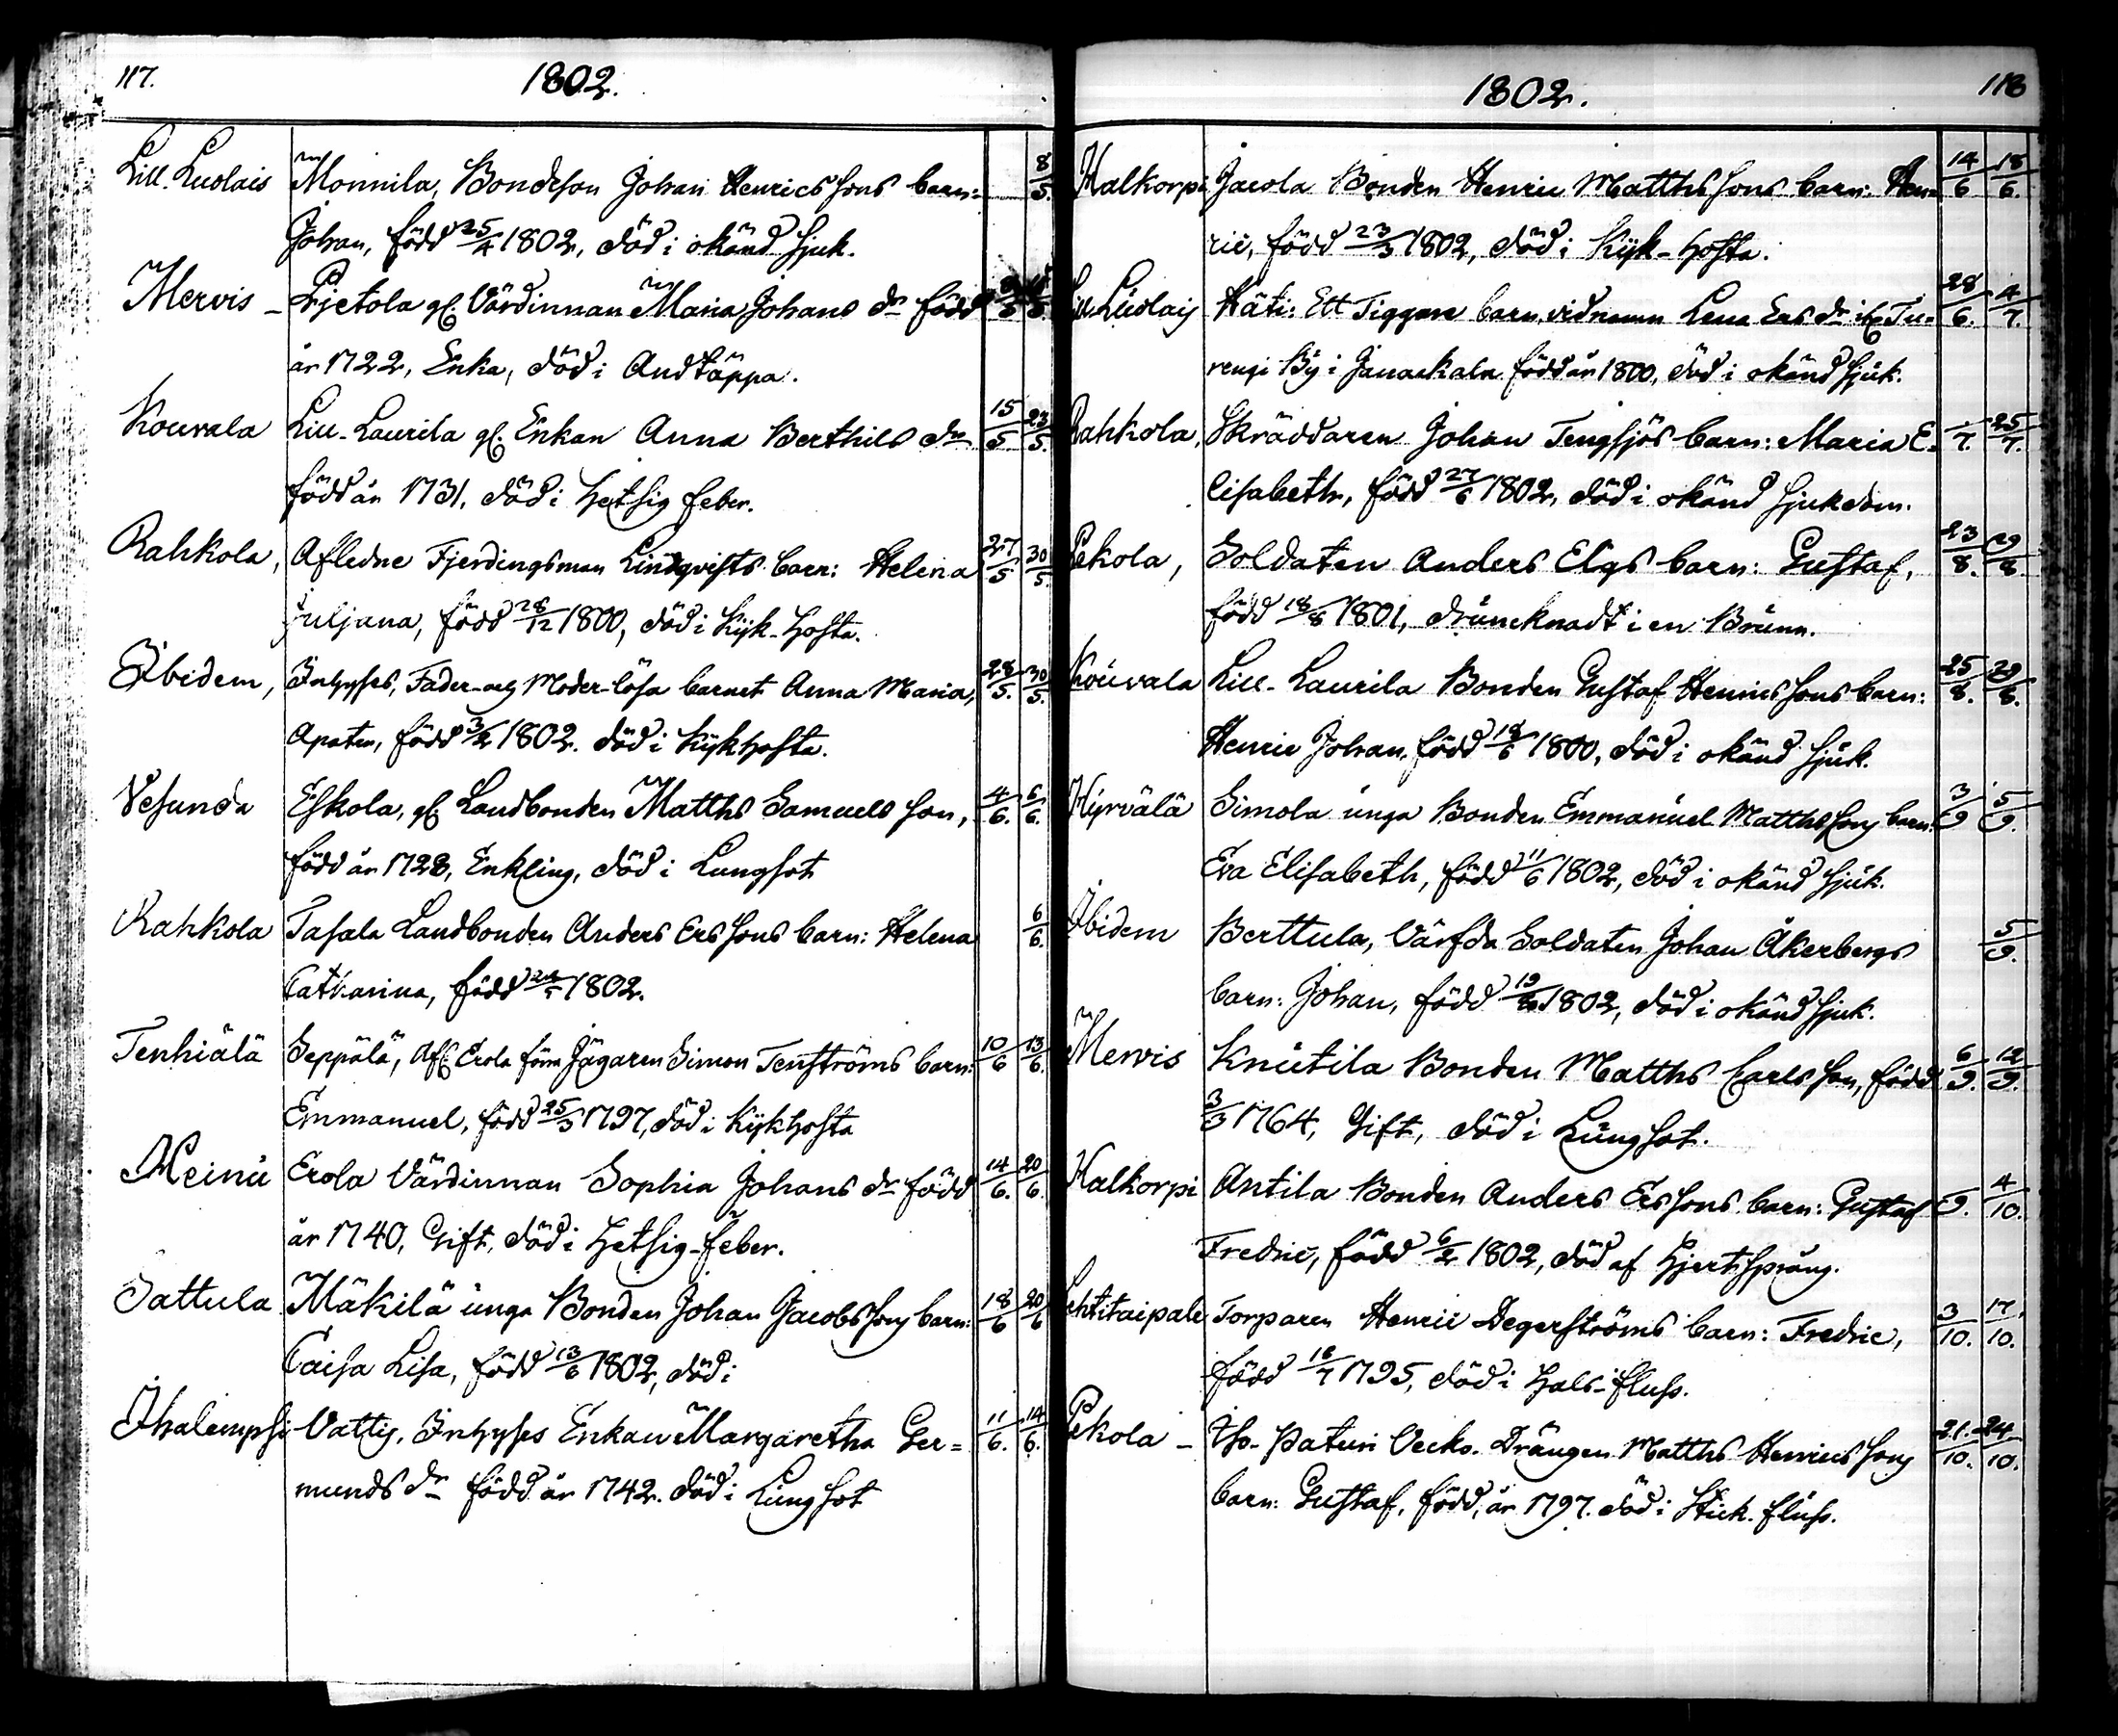 117.
1802.
Lill. Luolais Monnila, Bondeson Johan Henricssons barn: 8/5.
Johan, född 25/4 1802, död i okänd sjuk.
Mervis - Pjetola gl. Värdinnan Maria Johans dr född
år 1722, Enka, död i Andtäppa.
Kouvala Lill-Laurila gl. Enkan Anna Berthils dr 15/5. 23/5.
född år 1731, död i hetsig feber.
Rahkola, Afledne Fjerdingsman Lindqvists barn: Helena 27/5 30/5.
Juljana, född 28/12 1800, död i Kijk-hosta.
Ibidem, Inhyses, Fader- och Moder-lösa barnet Anna Maria, 28/5. 30/5.
född 3/2 1802. död i Kijkhosta.
Vesunda Eskola, gl. Landbonden Matths Samuels son, 4/6. 6/6.
född år 1728, Enkling, död i Lungsot
Rahkola Tasala Landbonden Anders Ers sons barn: Helena 6/6.
Catharina, född 1802.
Tenhiälä Seppälä, Afl. Erola förra Jägaren Simon Tenströms barn: 10/6 13/6.
Emmanuel, född 25/3 1797, död i Kijkhosta
Meinu Erola Värdinnan Sophia Johans dr född 14/6. 20/6.
år 1740, Gift, död i hetsig-feber.
Sattula Mäkilä unga Bonden Johan Jacobssons barn: 18/6 20/6
Caisa Lisa, född 13/6 1802, död i
Ihalempsi Vattis, Inhyses Enkan Margaretha Ger= 11/6. 14/6.
munds dr född år 1742. död i Lungsot
1802.
118
Halkorpi Jacola Bonden Henric Matthssons barn: Hen= 14/6 18/6.
ric, född 23/3 1802, död i Kijk-hosta.
Lill. Luolais Käti: Ett Tiggare barn, vid namn Lena Ers dr ifr. Tu= 28/6. 4/7.
rengi By i Janackala född år 1800, död i okänd sjuk.
Rahkola, Skräddaren Johan Tengsjös barn: Maria E- /7. 25/7.
lisabeth, född 27/6 1802, död i okänd sjukdom.
Pekola, Soldaten Anders Elgs barn: Gustaf, 23/8. 29/8
född 18/8 1801, drunknadt i en Brunn.
Kouvala Lill-Laurila Bonden Gustaf Henrics sons barn: 25/8. 29/8.
Henric Johan, född 18/6 1800, död i okänd sjuk.
Hyrvälä Simola unga Bonden Emmanuel Matthssons barn: 3/9 5/9.
Eva Elisabeth, född 11/6 1802, död i okänd sjuk.
Ibidem Berttula, Värfda Soldaten Johan Åkerbergs 5/9.
barn: Johan, född 1802, död i okänd sjuk.
Mervis Knutila Bonden Matths Carlsson, född 6/9. 12/9.
3/3 1764, Gift, död i Lungsot.
Halkorpi Antila Bonden Anders Erssons barn: Gustaf /9. 4/10.
Fredric, född 6/2 1802, död af Hjertsprång.
Lehtitaipale Torparen Henric Degerströms barn: Fredric, 3/10. 17/10.
född 18/7 1795, död i Hals-fluss.
Pekola - Yso-Paturi Vecko-Drängen Matths Henrics sons 21/10. 24/10.
barn: Gustaf, född, år 1797. död i Stick-fluss.